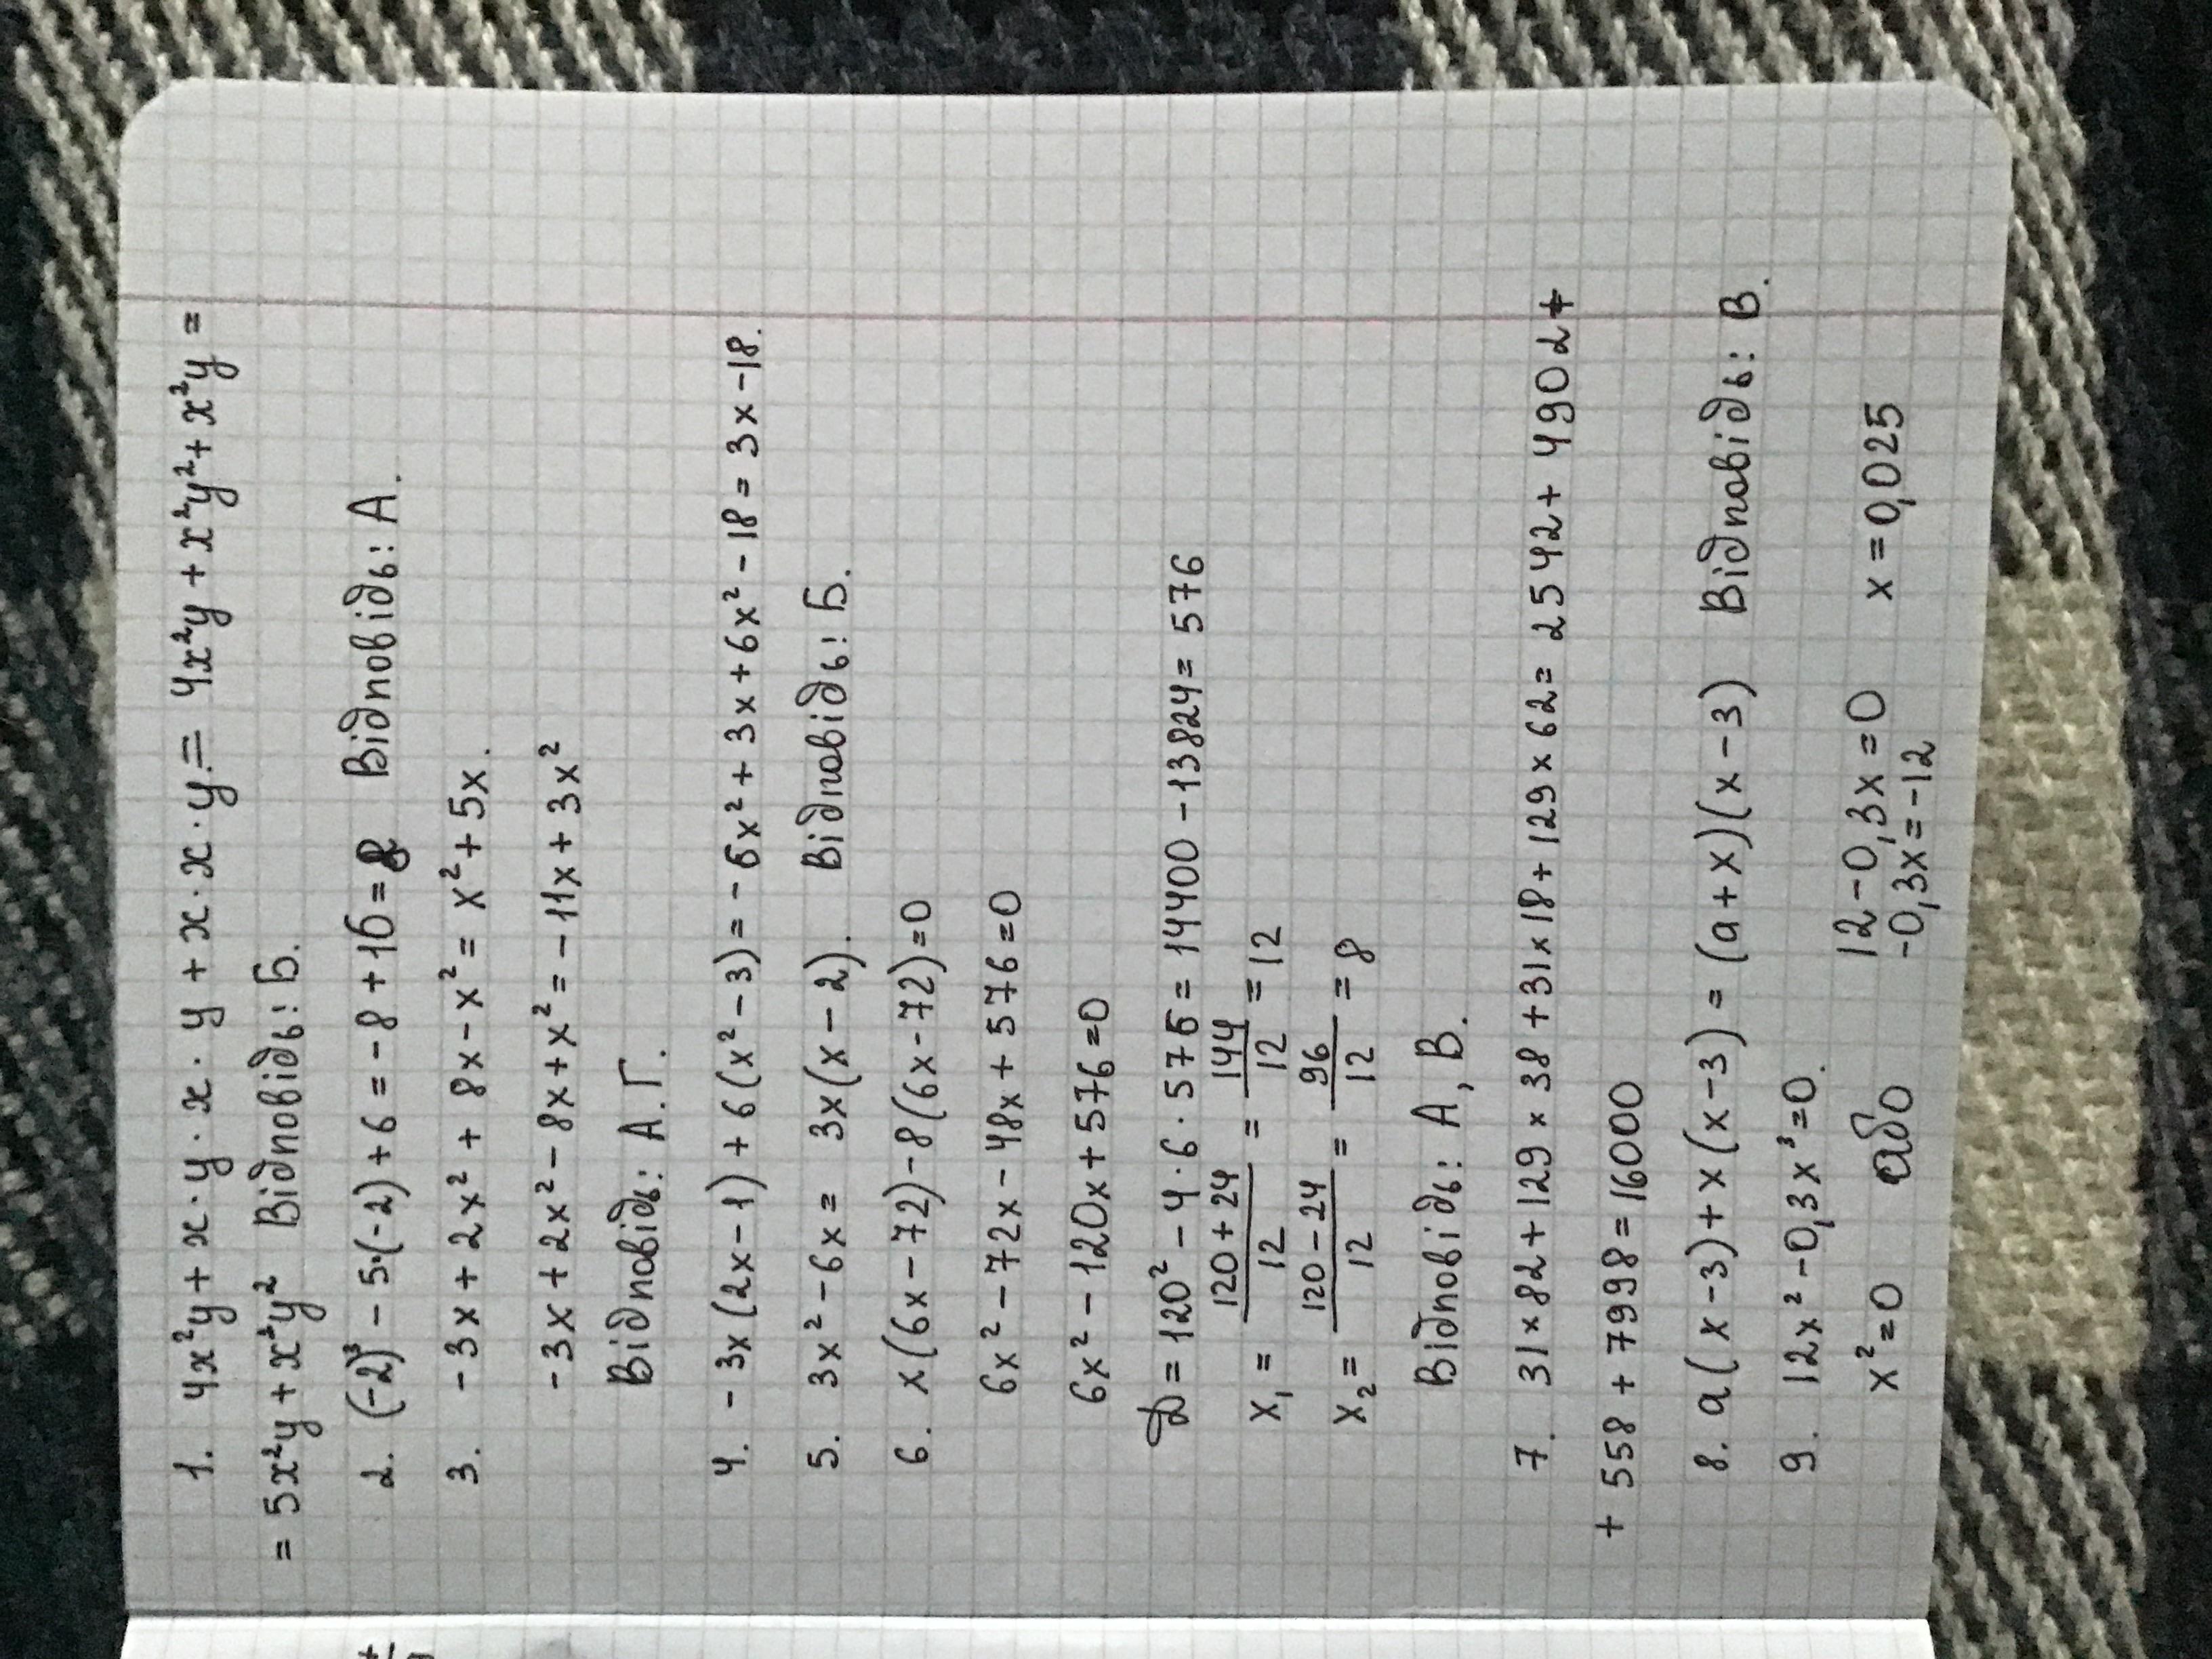 1. 4x²y + x·y·x·y + x·x·y = 4x²y + x²y² + x²y =
= 5x²y + x²y² Відповідь: Б.
2. (-2)³ - 5·(-2) + 6 = -8 + 16 = 8 Відповідь: А.
3. -3x + 2x² + 8x - x² = x² + 5x.
-3x + 2x² - 8x + x² = -11x + 3x²
Відповідь: А. Г.
4. -3x(2x-1) + 6(x²-3) = -6x² + 3x + 6x² - 18 = 3x - 18.
5. 3x² - 6x = 3x(x-2). Відповідь: Б.
6. x(6x-72)-8(6x-72)=0
6x² - 72x - 48x + 576 = 0
6x² - 120x + 576 = 0
D = 120² - 4·6·576 = 14400 - 13824 = 576
x₁ = (120+24)/12 = 144/12 = 12
x₂ = (120-24)/12 = 96/12 = 8
Відповідь: А, В.
7. 31×82 + 129×38 + 31×18 + 129×62 = 2542 + 4902 +
+ 558 + 7998 = 16000
8. a(x-3) + x(x-3) = (a+x)(x-3) Відповідь: В.
9. 12x² - 0,3x³ = 0.
x² = 0 або 12 - 0,3x = 0 x = 0,025
-0,3x = -12